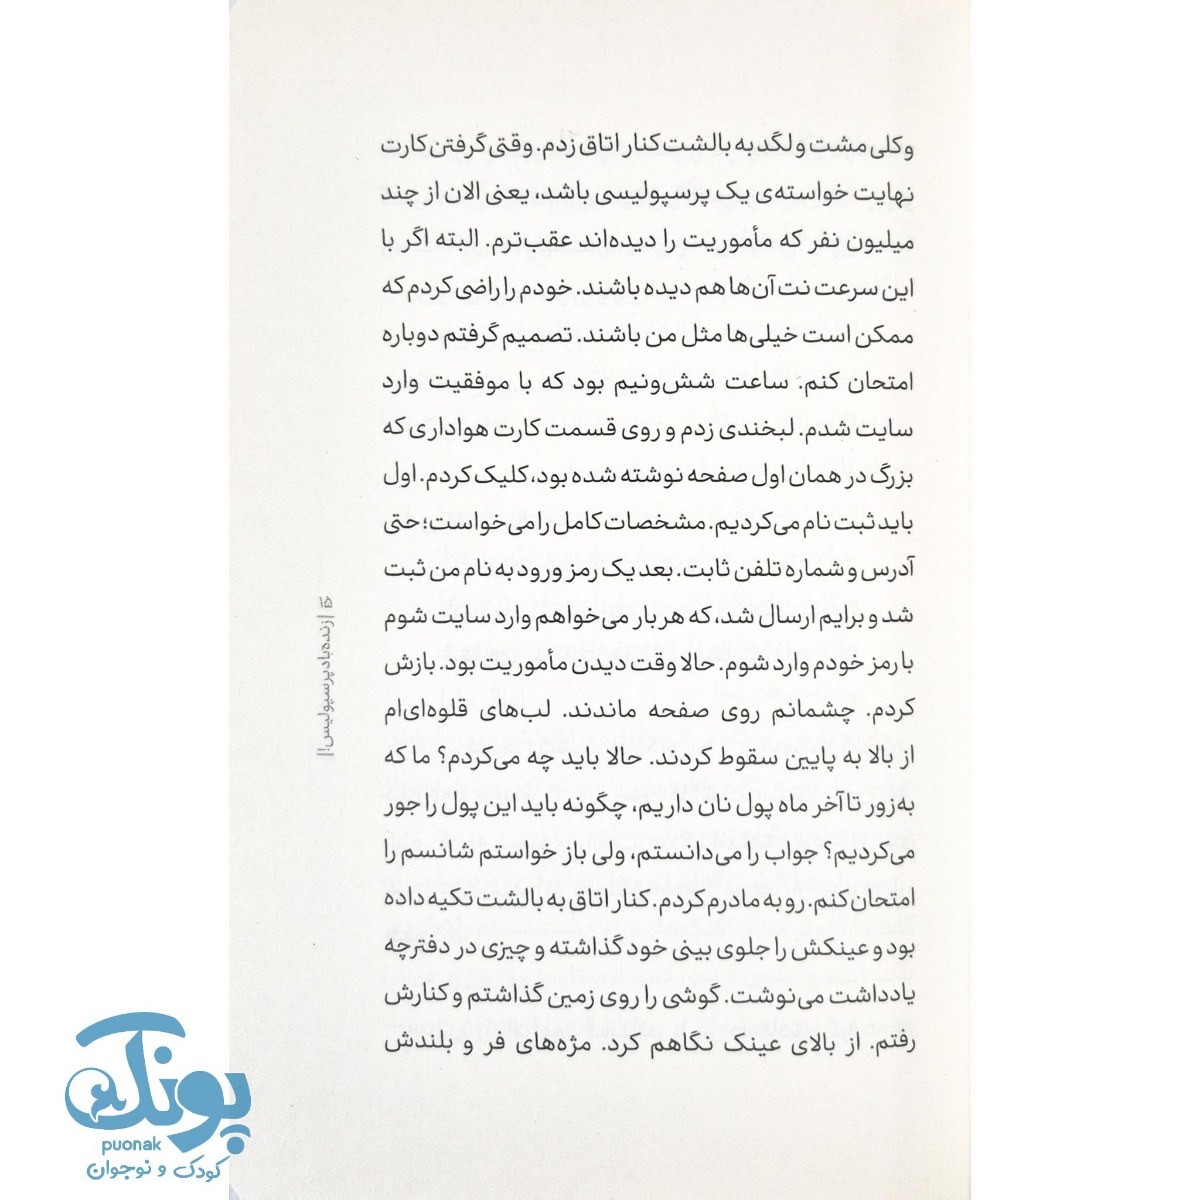 و کلی مشت و لگد به بالشت کنار اتاق زدم. وقتی گرفتن کارت
نهایت خواسته‌ی یک پرسپولیسی باشد، یعنی الان از چند
میلیون نفر که مأموریت را دیده‌اند عقب‌ترم. البته اگر با
این سرعت نت آن‌ها هم دیده باشند. خودم را راضی کردم که
ممکن است خیلی‌ها مثل من باشند. تصمیم گرفتم دوباره
امتحان کنم. ساعت شش‌ونیم بود که با موفقیت وارد
سایت شدم. لبخندی زدم و روی قسمت کارت هواداری که
بزرگ در همان اول صفحه نوشته شده بود، کلیک کردم. اول
باید ثبت نام می‌کردیم. مشخصات کامل را می‌خواست؛ حتی
آدرس و شماره تلفن ثابت. بعد یک رمز ورود به نام من ثبت
شد و برایم ارسال شد، که هر بار می‌خواهم وارد سایت شوم
با رمز خودم وارد شوم. حالا وقت دیدن مأموریت بود. بازش
کردم. چشمانم روی صفحه ماندند. لب‌های قلوه‌ای‌ام
از بالا به پایین سقوط کردند. حالا باید چه می‌کردم؟ ما که
به‌زور تا آخر ماه پول نان داریم، چگونه باید این پول را جور
می‌کردیم؟ جواب را می‌دانستم، ولی باز خواستم شانسم را
امتحان کنم. رو به مادرم کردم. کنار اتاق به بالشت تکیه داده
بود و عینکش را جلوی بینی خود گذاشته و چیزی در دفترچه
یادداشت می‌نوشت. گوشی را روی زمین گذاشتم و کنارش
رفتم. از بالای عینک نگاهم کرد. مژه‌های فر و بلندش
| زنده‌باد پرسپولیس! |
پونک
puonak
کودک و نوجوان